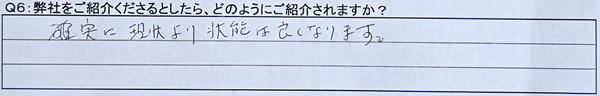 Q6：弊社をご紹介くださるとしたら、どのようにご紹介されますか？
確実に現状より状態は良くなります。